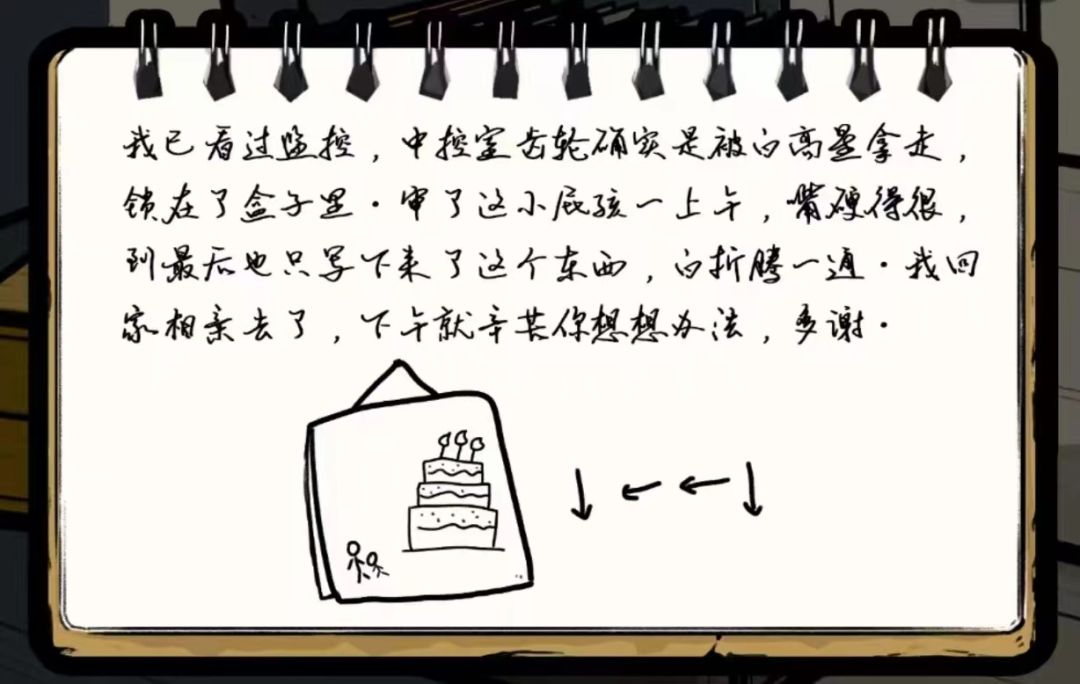 我已看过监控，中控室齿轮确实是被白高星拿走，
锁在了盒子里．审了这小屁孩一上午，嘴硬得很，
到最后也只写下来了这个东西，白折腾一通．我回
家相亲去了，下午就辛苦你想想办法，多谢．